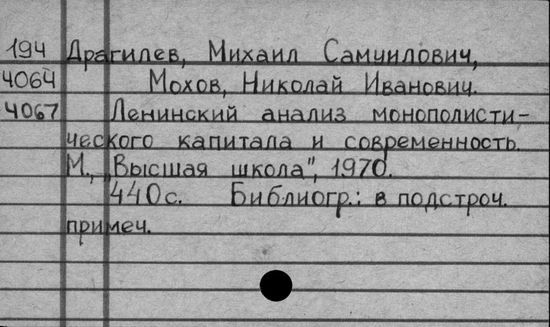 194 Драгилев, Михаил Самуилович,
4064 Мохов, Николай Иванович.
4067 Ленинский анализ монополисти-
ческого капитала и современность.
М., „Высшая школа", 1970.
440с. Библиогр.: в подстроч.
примеч.